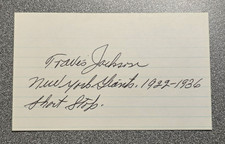 Travis Jackson
New York Giants. 1922-1936
Short Stop.